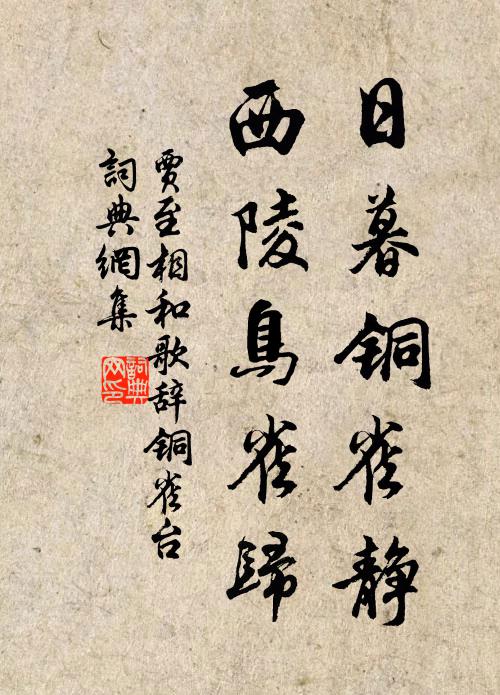 日暮铜雀静
西陵鳥雀歸
贾至相和歌辞铜雀台
詞典網集
詞典
网印